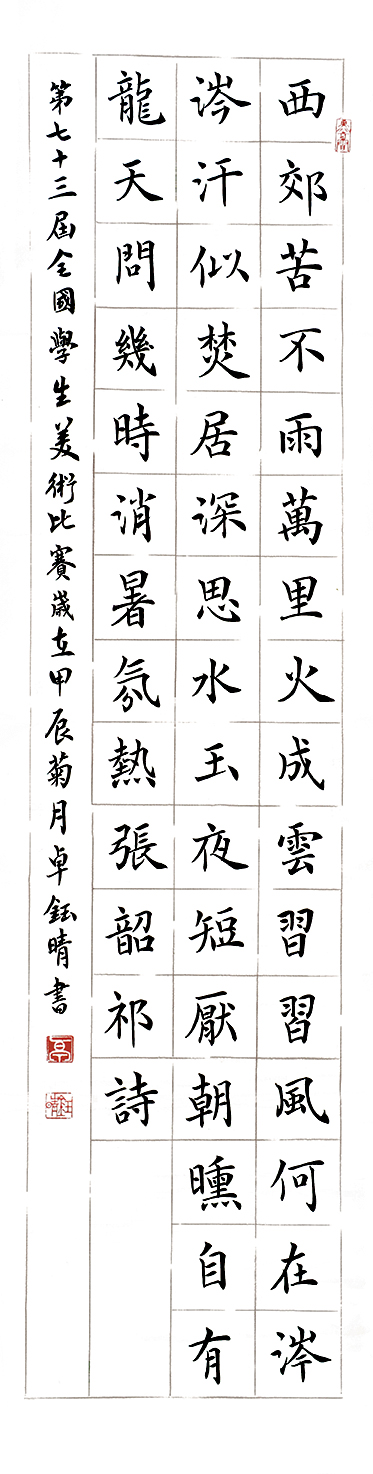 西郊苦不雨萬里火成雲習習風何在涔
涔汗似焚居深思水玉夜短厭朝曛自有
龍天問幾時消暑氛熱張韶祁詩
第七十三屆全國學生美術比賽歲在甲辰菊月卓鈺晴書